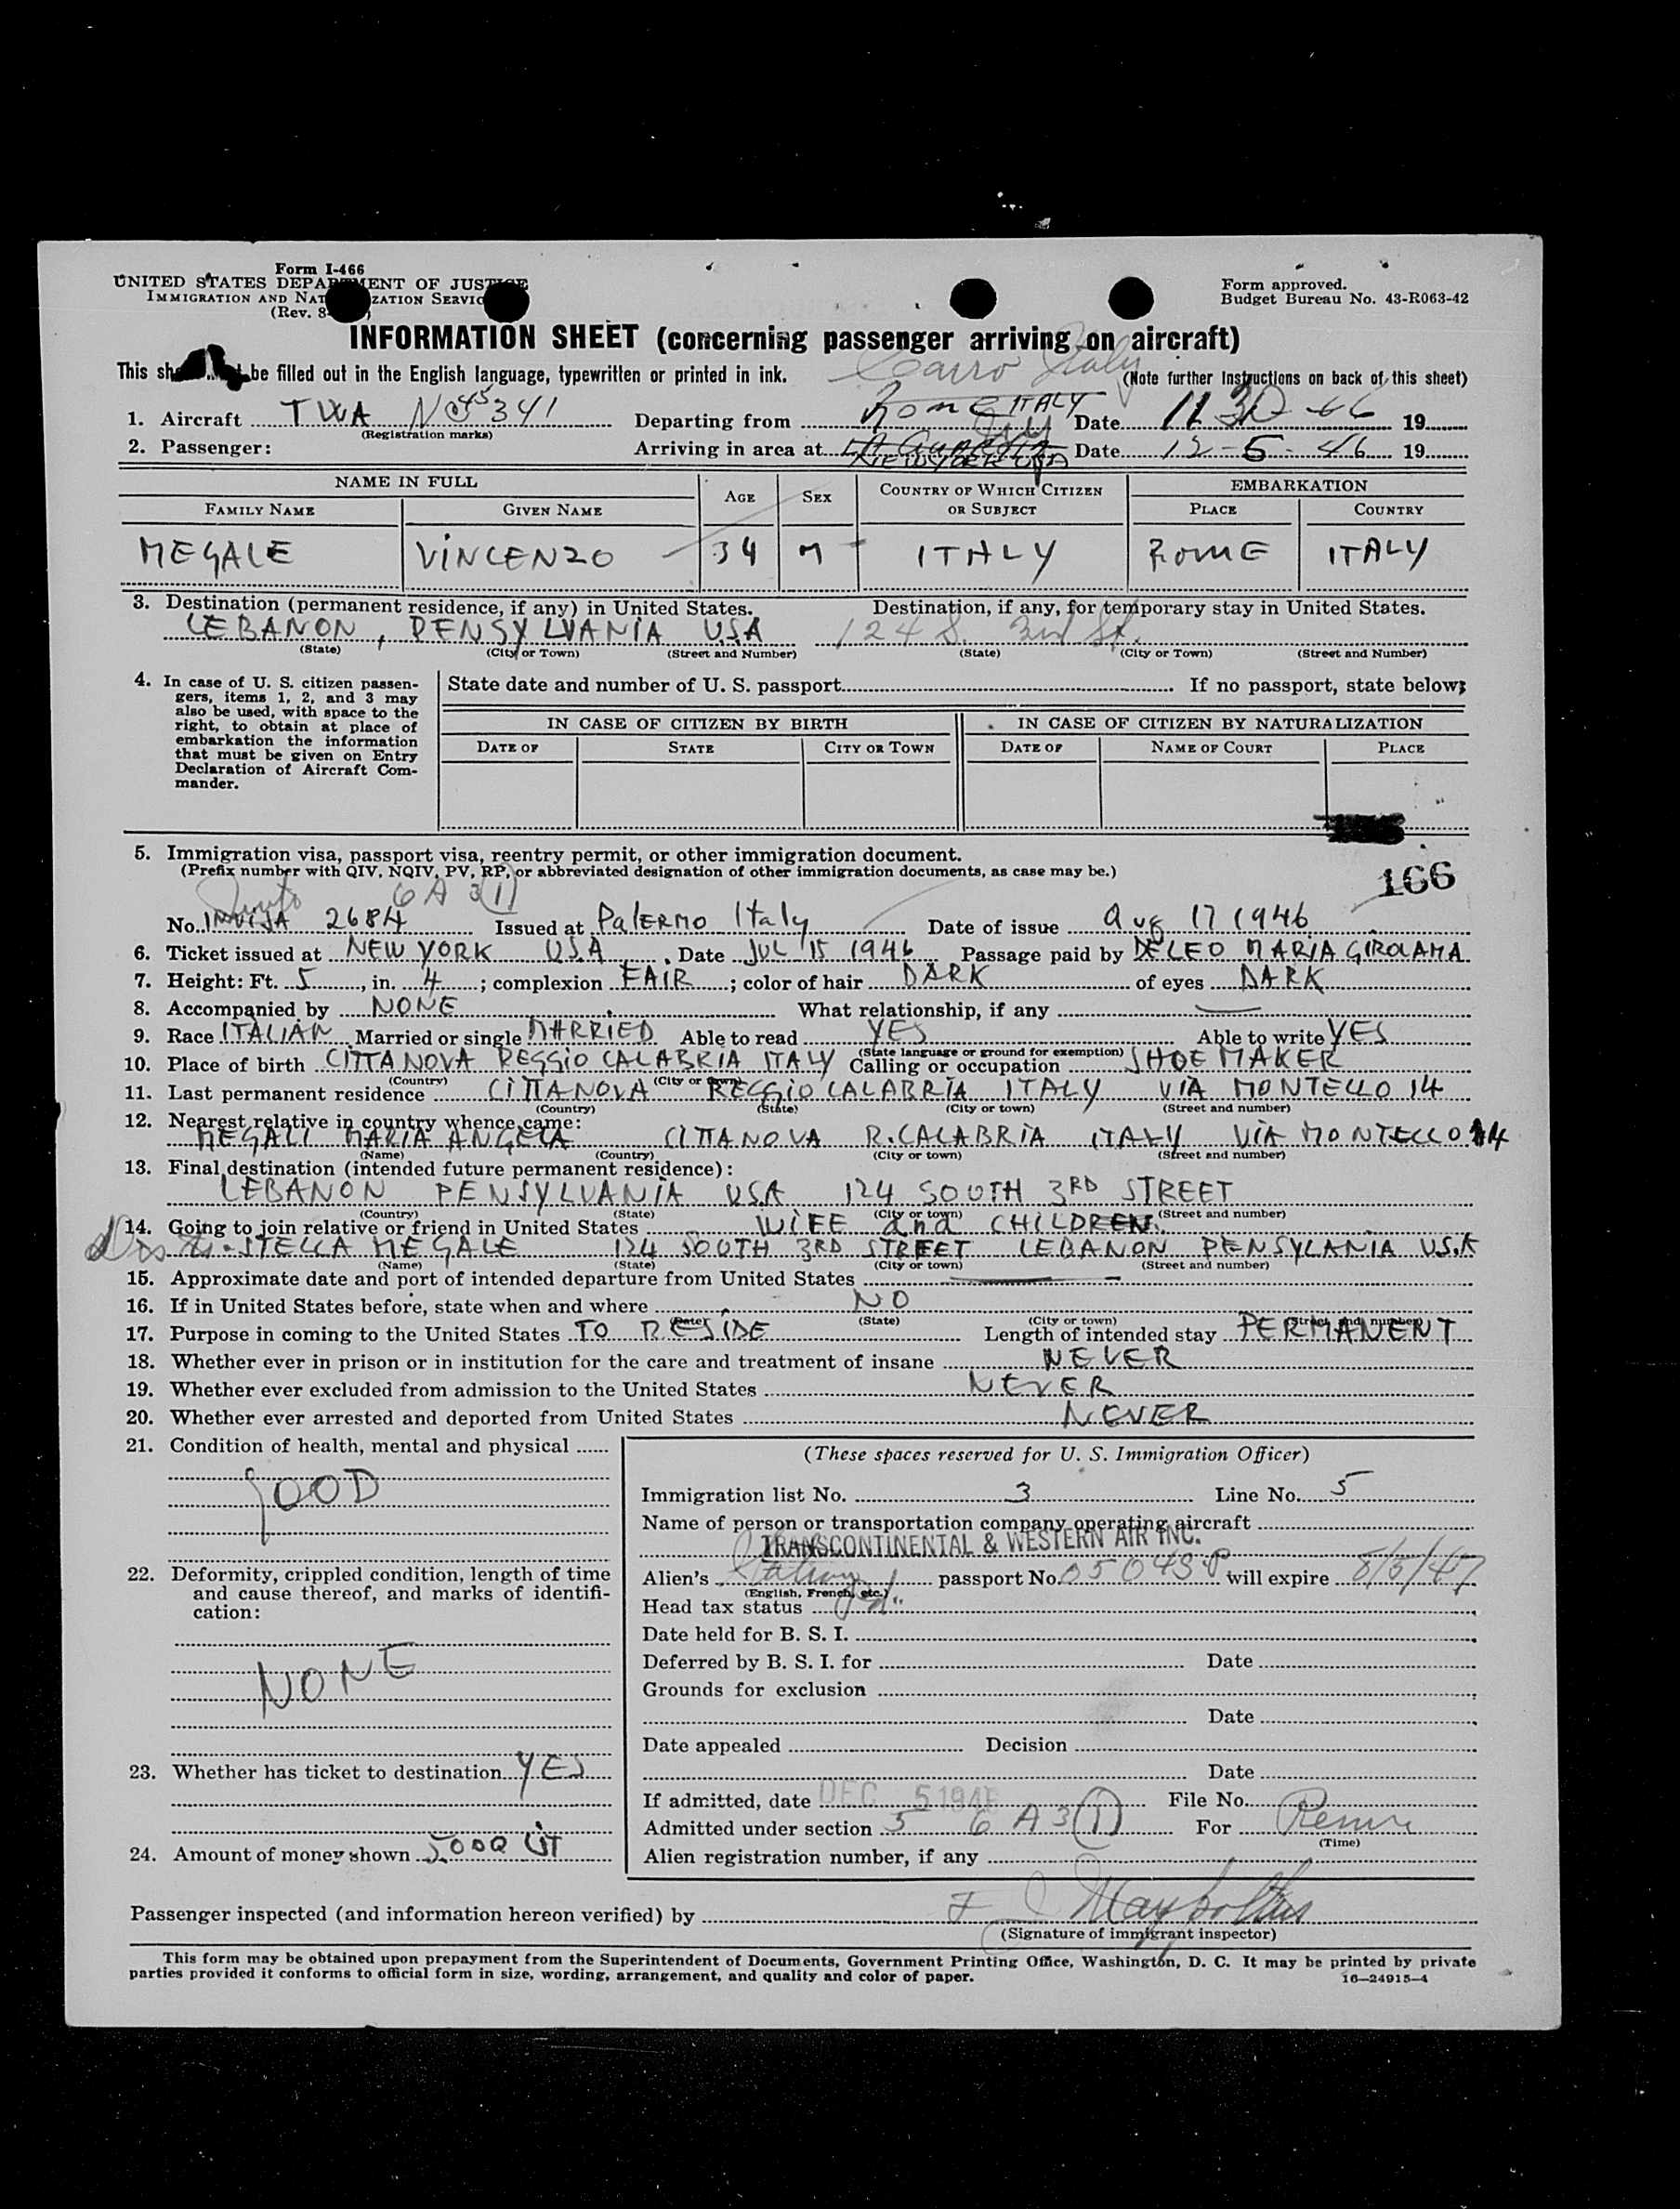 Form I-466
UNITED STATES DEPARTMENT OF JUSTICE
IMMIGRATION AND NATURALIZATION SERVICE
(Rev. 8-
Form approved.
Budget Bureau No. 43-R063-42
INFORMATION SHEET (concerning passenger arriving on aircraft)
This be filled out in the English language, typewritten or printed in ink.
Cairo Italy
(Note further instructions on back of this sheet)
1. Aircraft TWA NC 45341 Departing from Rome ITALY Date 11 30 46 19
(Registration marks)
2. Passenger: Arriving in area at NEW YORK USA Date 12-5-46 19
NAME IN FULL AGE SEX COUNTRY OF WHICH CITIZEN OR SUBJECT EMBARKATION
FAMILY NAME GIVEN NAME PLACE COUNTRY
MEGALE VINCENZO 34 M ITALY ROME ITALY
3. Destination (permanent residence, if any) in United States. Destination, if any, for temporary stay in United States.
LEBANON, PENSYLVANIA USA 124 S. 3rd St.
(State) (City or Town) (Street and Number) (State) (City or Town) (Street and Number)
4. In case of U. S. citizen passengers, items 1, 2, and 3 may also be used, with space to the right, to obtain at place of embarkation the information that must be given on Entry Declaration of Aircraft Commander.
State date and number of U. S. passport If no passport, state below;
IN CASE OF CITIZEN BY BIRTH IN CASE OF CITIZEN BY NATURALIZATION
DATE OF STATE CITY OR TOWN DATE OF NAME OF COURT PLACE
5. Immigration visa, passport visa, reentry permit, or other immigration document.
(Prefix number with QIV, NQIV, PV, RP, or abbreviated designation of other immigration documents, as case may be.)
166
6 A 3(1)
No. 2684 Issued at PALERMO Italy Date of issue Aug 17 1946
6. Ticket issued at NEW YORK USA Date JUL 15 1946 Passage paid by DE LEO MARIA GIROLAMA
7. Height: Ft. 5, in. 4; complexion FAIR; color of hair DARK of eyes DARK
8. Accompanied by NONE What relationship, if any
9. Race ITALIAN Married or single MARRIED Able to read YES Able to write YES
(State language or ground for exemption)
10. Place of birth CITTANOVA REGGIO CALABRIA ITALY Calling or occupation SHOE MAKER
(Country) (City or town)
11. Last permanent residence CITTANOVA REGGIO CALABRIA ITALY VIA MONTELLO 14
(Country) (State) (City or town) (Street and number)
12. Nearest relative in country whence came:
MEGALI MARIA ANGELA CITTANOVA R. CALABRIA ITALY VIA MONTELLO 14
(Name) (Country) (City or town) (Street and number)
13. Final destination (intended future permanent residence):
LEBANON PENSYLVANIA USA 124 SOUTH 3RD STREET
(Country) (State) (City or town) (Street and number)
14. Going to join relative or friend in United States WIFE and CHILDREN.
STELLA MEGALE 124 SOUTH 3RD STREET LEBANON PENSYLANIA U.S.A
(Name) (State) (City or town) (Street and number)
15. Approximate date and port of intended departure from United States
16. If in United States before, state when and where NO
(Date) (State) (City or town) (Street and number)
17. Purpose in coming to the United States TO RESIDE Length of intended stay PERMANENT
18. Whether ever in prison or in institution for the care and treatment of insane NEVER
19. Whether ever excluded from admission to the United States NEVER
20. Whether ever arrested and deported from United States NEVER
21. Condition of health, mental and physical
GOOD
22. Deformity, crippled condition, length of time and cause thereof, and marks of identification:
NONE
23. Whether has ticket to destination YES
24. Amount of money shown 5000 LIT
(These spaces reserved for U. S. Immigration Officer)
Immigration list No. 3 Line No. 5
Name of person or transportation company operating aircraft
TRANSCONTINENTAL & WESTERN AIR INC.
Alien's Italian passport No. 05043 P will expire 8/5/47
(English, French, etc.)
Head tax status
Date held for B. S. I.
Deferred by B. S. I. for Date
Grounds for exclusion
Date
Date appealed Decision
Date
If admitted, date DEC 5 1946 File No.
Admitted under section 5 6 A 3(1) For Perm
(Time)
Alien registration number, if any
Passenger inspected (and information hereon verified) by
(Signature of immigrant inspector)
This form may be obtained upon prepayment from the Superintendent of Documents, Government Printing Office, Washington, D. C. It may be printed by private
parties provided it conforms to official form in size, wording, arrangement, and quality and color of paper. 16—24915-4